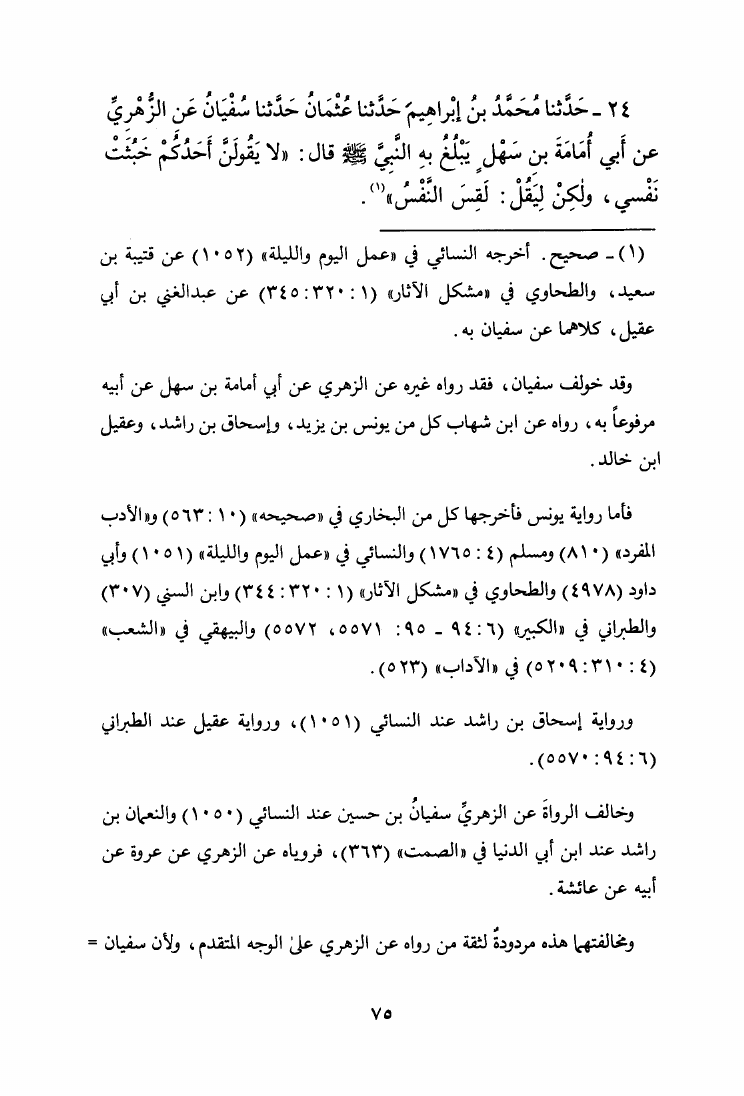 ٢٤ ـ حَدَّثنا مُحَمَّدُ بنُ إبْراهِيمَ حَدَّثنا عُثْمَانُ حَدَّثنا سُفْيَانُ عَنِ الزُّهْرِيِّ
عن أَبي أُمَامَةَ بنِ سَهْلٍ يَبْلُغُ بهِ النَّبِيَّ ﷺ قال: «لا يَقُولَنَّ أَحَدُكُمْ خَبُثَتْ
نَفْسي، ولٰكِنْ لِيَقُلْ: لَقِسَ النَّفْسُ»(١).
(١) ـ صحيح. أخرجه النسائي في «عمل اليوم والليلة» (١٠٥٢) عن قتيبة بن
سعيد، والطحاوي في «مشكل الآثار» (١: ٣٢٠: ٣٤٥) عن عبدالغني بن أبي
عقيل، كلاهما عن سفيان به.
وقد خولف سفيان، فقد رواه غيره عن الزهري عن أبي أمامة بن سهل عن أبيه
مرفوعاً به، رواه عن ابن شهاب كل من يونس بن يزيد، وإسحاق بن راشد، وعقيل
ابن خالد.
فأما رواية يونس فأخرجها كل من البخاري في «صحيحه» (١٠: ٥٦٣) و«الأدب
المفرد» (٨١٠) ومسلم (٤: ١٧٦٥) والنسائي في «عمل اليوم والليلة» (١٠٥١) وأبي
داود (٤٩٧٨) والطحاوي في «مشكل الآثار» (١: ٣٢٠: ٣٤٤) وابن السني (٣٠٧)
والطبراني في «الكبير» (٦: ٩٤ ـ ٩٥: ٥٥٧١، ٥٥٧٢) والبيهقي في «الشعب»
(٤: ٣١٠: ٥٢٠٩) في «الآداب» (٥٢٣).
ورواية إسحاق بن راشد عند النسائي (١٠٥١)، ورواية عقيل عند الطبراني
(٦: ٩٤: ٥٥٧٠).
وخالف الرواةَ عن الزهريِّ سفيانُ بن حسين عند النسائي (١٠٥٠) والنعمان بن
راشد عند ابن أبي الدنيا في «الصمت» (٣٦٣)، فروياه عن الزهري عن عروة عن
أبيه عن عائشة.
ومخالفتهما هذه مردودةٌ لثقة من رواه عن الزهري على الوجه المتقدم، ولأن سفيان =
٧٥